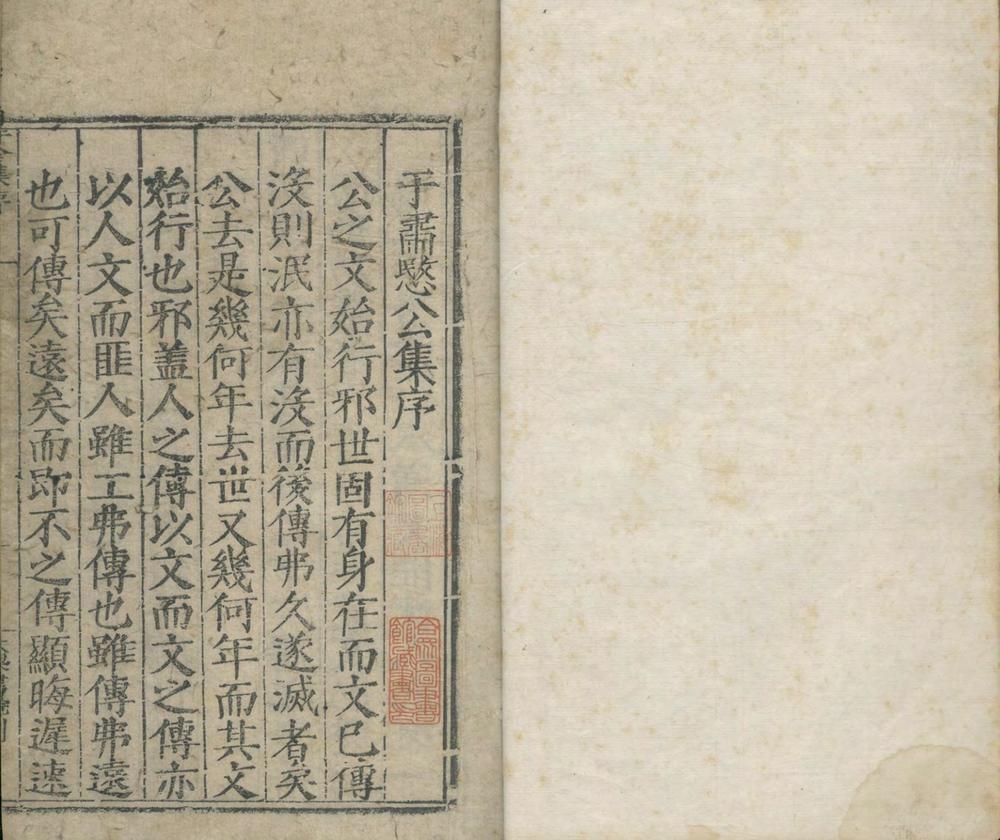 于肅愍公集序
公之文始行邪世固有身在而文已傳
沒則泯亦有沒而後傳弗久遂滅者矣
公去是幾何年去世又幾何年而其文
始行也邪蓋人之傳以文而文之傳亦
以人文而匪人雖工弗傳也雖傳弗遠
也可傳矣遠矣而即不之傳顯晦遲速